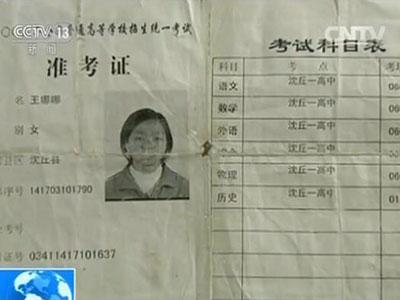 CCTV 13
新闻
CNTV
普通高等学校招生统一考试
准考证
名 王娜娜
别 女
县区 沈丘县
序号 141703101790
考号
证号 03411417101637
考试科目表
科目 考点 考
语文 沈丘一高中 06
数学 沈丘一高中 06
外语 沈丘一高中 06
沈丘一高中 06
物理 沈丘一高中 06
历史 沈丘一高中 01